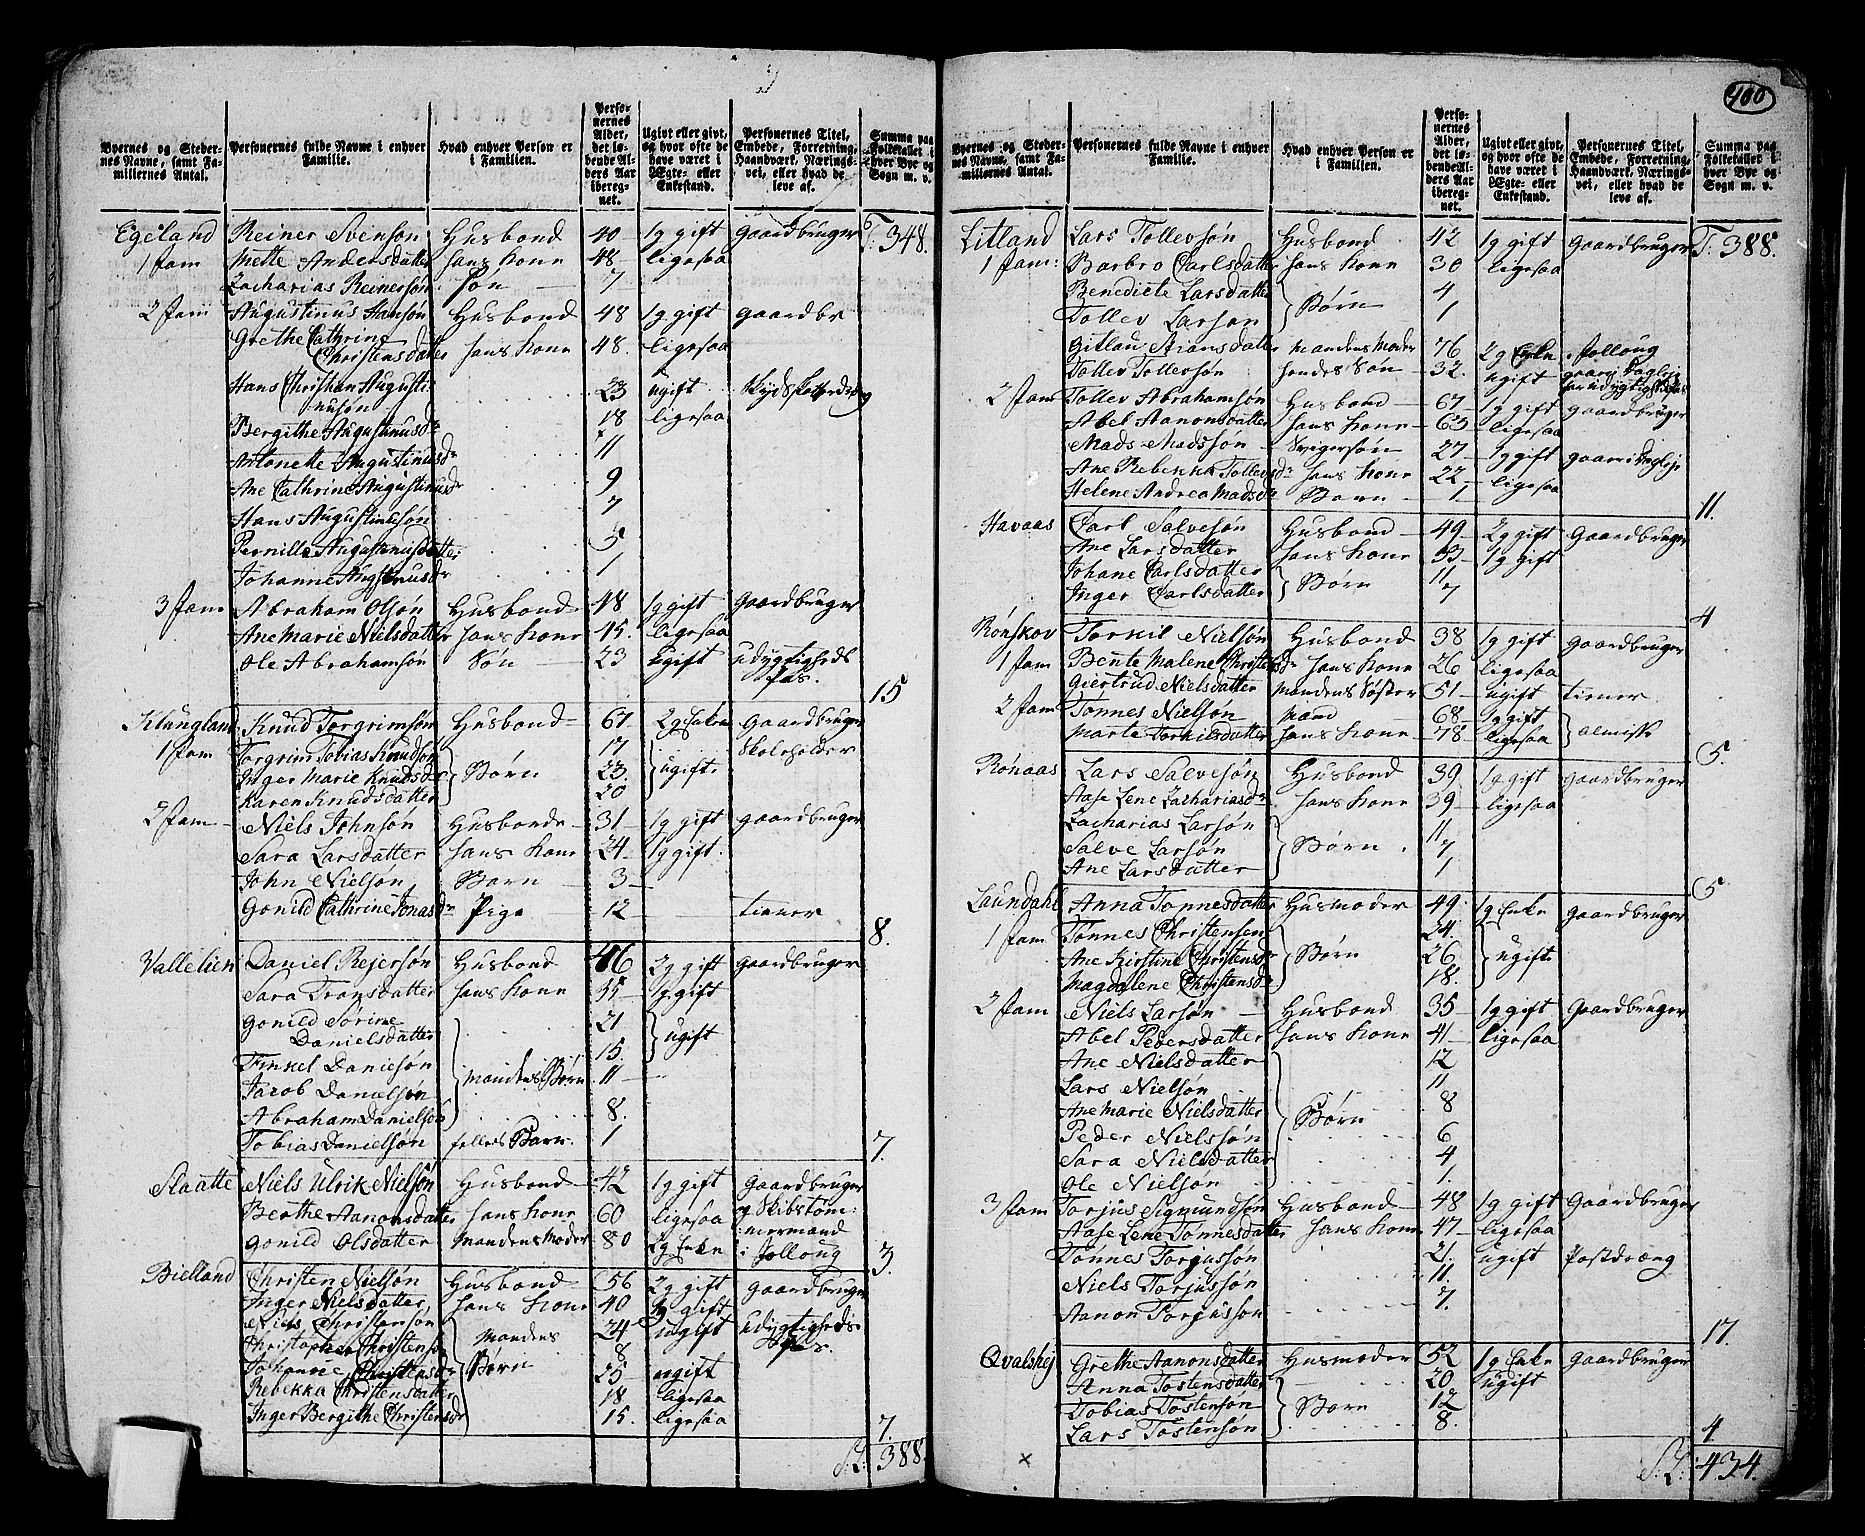 400
Byernes og Stedernes Navne, samt Familiernes Antal.
Personernes fulde Navne i enhver Familie.
Hvad enhver Person er i Familien.
Personernes Alder, det løbende Alders Aar iberegnet.
Ugivt eller givt, og hvor ofte de have været i Ægte- eller Enkestand.
Personernes Titel, Embede, Forretning, Haandværk, Næringsvei, eller hvad de leve af.
Summa paa Folketallet i hver Bye og Sogn m. v.
Egeland Reiner Svensøn Husbond 40 1g gift Gaardbruger T: 348.
1 fam Mette Andersdatter hans Kone 48 ligesaa
Zacharias Reinersøn Søn 7
2 fam Augustinus Hansøn Husbond 48 1g gift gaardbr
Grethe Cathrine
Christensdatter hans Kone 48. ligesaa
Hans Christian Augusti
nusøn 23 ugift
Bergithe Augustinusdr 18 ligesaa
Antonette Augustinusdr 11
Ane Cathrine Augustinusdr 9
Hans Augustinusøn 7
Pernille Augustinusdatter 5
Johanne Augstinusdr 1
3 fam Abraham Olsøn Husbond 48 1g gift Gaardbruger
Ane Marie Nielsdatter hans Kone 45. ligesaa
Ole Abrahamsøn Søn 23 ugift udygtigheds
pas. 15
Klungland Knud Torgrimsøn Husbond 67 2g Enke Gaardbruger
1 fam Torgrim Tobias Knudsøn 17 Skoleholder
Inger Marie Knudsdr Børn 23. ugift
Karen Knudsdatter 20
2 fam Niels Johnsøn Husbonde 31 1g gift gaardbruger
Sara Larsdatter hans Kone 24 1g gift
John Nielsøn Barn 3
Gonild Cathrine Jonasdr Pige 12 tiener 8.
Vallelien Daniel Rejersøn Husbond 46 2g gift gaardbruger
Sara Tronsdatter hans Kone 35 1g gift
Gonild Sørine
Danielsdatter 21 ugift
Tinkel Danielsøn 15.
Jacob Danielsøn mandens Børn 11
Abraham Danielsøn 8.
Tobias Danielsøn felles Barn. 1 7.
Slaatte Niels Ulrik Nielsøn Husbond 42 1g gift gaardbruger
Berthe Aanonsdatter hans Kone 60 ligesaa og Skibstøm:
Gonild Olsdatter Mandens Moder 80 2g Enke mermand
i folloug 3.
Bielland Christen Nielsøn Husbond 56 2g gift gaardbruger
Inger Nielsdatter hans Kone 40 1g gift
Niels Christensøn Mandens 24 ugift udygtigheds
Christopher Christensøn Børn 8 Pas.
Johanne Christensdr 25 ugift
Rebekka Christensdatter 18 ligesaa
Inger Bergithe Christensdr 15. ligesaa 7.
S: L: 388.
Byernes og Stedernes Navne, samt Familiernes Antal.
Personernes fulde Navne i enhver Familie.
Hvad enhver Person er i Familien.
Personernes Alder, det løbende Alders Aar iberegnet.
Ugivt eller givt, og hvor ofte de have været i Ægte- eller Enkestand.
Personernes Titel, Embede, Forretning, Haandværk, Næringsvei, eller hvad de leve af.
Summa paa Folketallet i hver Bye og Sogn m. v.
Litland Lars Tollevsøn Husbond 42 1g gift Gaardbruger T: 388.
1 fam: Barbro Carlsdatter hans Kone 30 ligesaa
Benedicte Larsdatter Børn 4
Tollev Larsøn 1
Gitlau Stiansdatter mandens Moder 76 2g Enke i folloug
Tollev Tollevsøn hendes Søn 32. ugift
2 fam Tollev Abrahamsøn Husbond 67 1g gift gaardbruger
Abel Aanonsdatter hans Kone 63 ligesaa
Mads Madssøn Svigersøn 27 1g gift
Ane Rebekka Tollevsdr hans Kone 22 ligesaa
Helene Andrea Madsdr Barn 1 11.
Havaas Carl Salvesøn Husbond 49 2g gift Gaardbruger
Ane Larsdatter hans Kone 33 1g gift
Johane Carlsdatter Børn 11
Inger Carlsdatter 7 4
Rønskov Torkil Nielsøn Husbond 38 1g gift gaardbruger
1 fam Bente Malene Christensdr hans Kone 26 ligesaa
Giertrud Nielsdatter Mandens Søster 51 ugift tiener
2 fam Tønnes Nielsøn Mand 68 1g gift almisse
Marte Torkilsdatter hans Kone 78 ligesaa 5.
Rønaas Lars Salvesøn Husbond 39 1g gift gaardbruger
Aase Lene Zachariasdr hans Kone 39 ligesaa
Zacharias Larsøn 11
Salve Larsøn Børn 7
Ane Larsdatter 1 5
Laundahl Anna Tønnesdatter Husmoder 49 1g Enke gaardbruger
1 fam Tønnes Christensen 24.
Ane Kirstine Christensdr Børn 26 ugift
Magdalene Christensdr 18.
2 fam Niels Larsøn Husbond 35 1g gift Gaardbruger
Abel Pedersdatter hans Kone 41 ligesaa
Ane Nielsdatter 12
Lars Nielsøn 11
Ane Marie Nielsdatter Børn 8
Peder Nielssøn 6
Sara Nielsdatter 4
Ole Nielsøn 1.
3 fam Torjus Sigmundsøn Husbond 48 1g gift Gaardbruger
Aase Lene Tønnesdatter hans Kone 47 ligesaa
Tønnes Torjussøn 21. ugift Postdreng
Niels Torjussøn 11.
Aanon Torjussøn 7. 17.
Qvalshej Grethe Aanonsdatter Husmoder 52 1g Enke gaardbruger
Anna Tostensdatter 20 ugift
Tobias Tostensøn Børn 12
Lars Tostensøn 8. 4
S: L: 434.